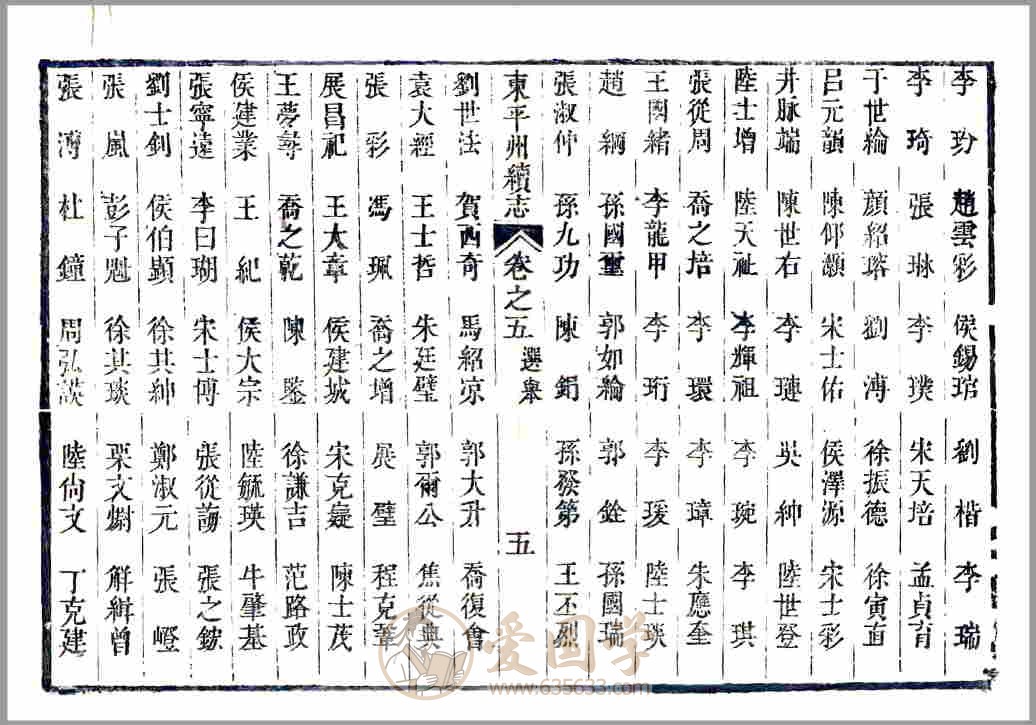 李玠 趙雲彩 侯錫琯 劉楷 李瑞
李琦 張琳 李璞 宋天培 孟貞育
于世綸 顏紹瑢 劉溥 徐振德 徐寅直
呂元韻 陳仰灝 宋士佑 侯澤源 宋士彩
井脉端 陳世右 李璉 吳紳 陸世登
陸士增 陸天祉 李輝祖 李琬 李琪
張從周 喬之培 李環 李璋 朱應奎
王國緒 李龍甲 李珩 李瑗 陸士琰
趙綱 孫國璽 郭如綸 郭銓 孫國瑞
張淑仲 孫九功 陳鋗 孫發第 王丕烈
東平州續志 卷之五 選舉 五
劉世法 賀西奇 馬紹凉 郭大升 喬復會
袁大經 王士哲 朱廷璧 郭爾公 焦從典
張彩 馮珮 喬之增 展璧 程克肇
展昌祀 王大章 侯建城 宋克嶷 陳士茂
王夢尋 喬之乾 陳鑒 徐謙吉 范路政
侯建業 王紀 侯大宗 陸毓瑛 牛肇基
張寧遠 李曰瑚 宋士博 張從謝 張之鋐
劉士釗 侯伯顯 徐其紳 鄭淑元 張嶝
張嵐 彭子魁 徐其琰 栗文熽 解緝曾
張溥 杜鐘 周弘談 陸尚文 丁克建
爱国学
www.635633.com